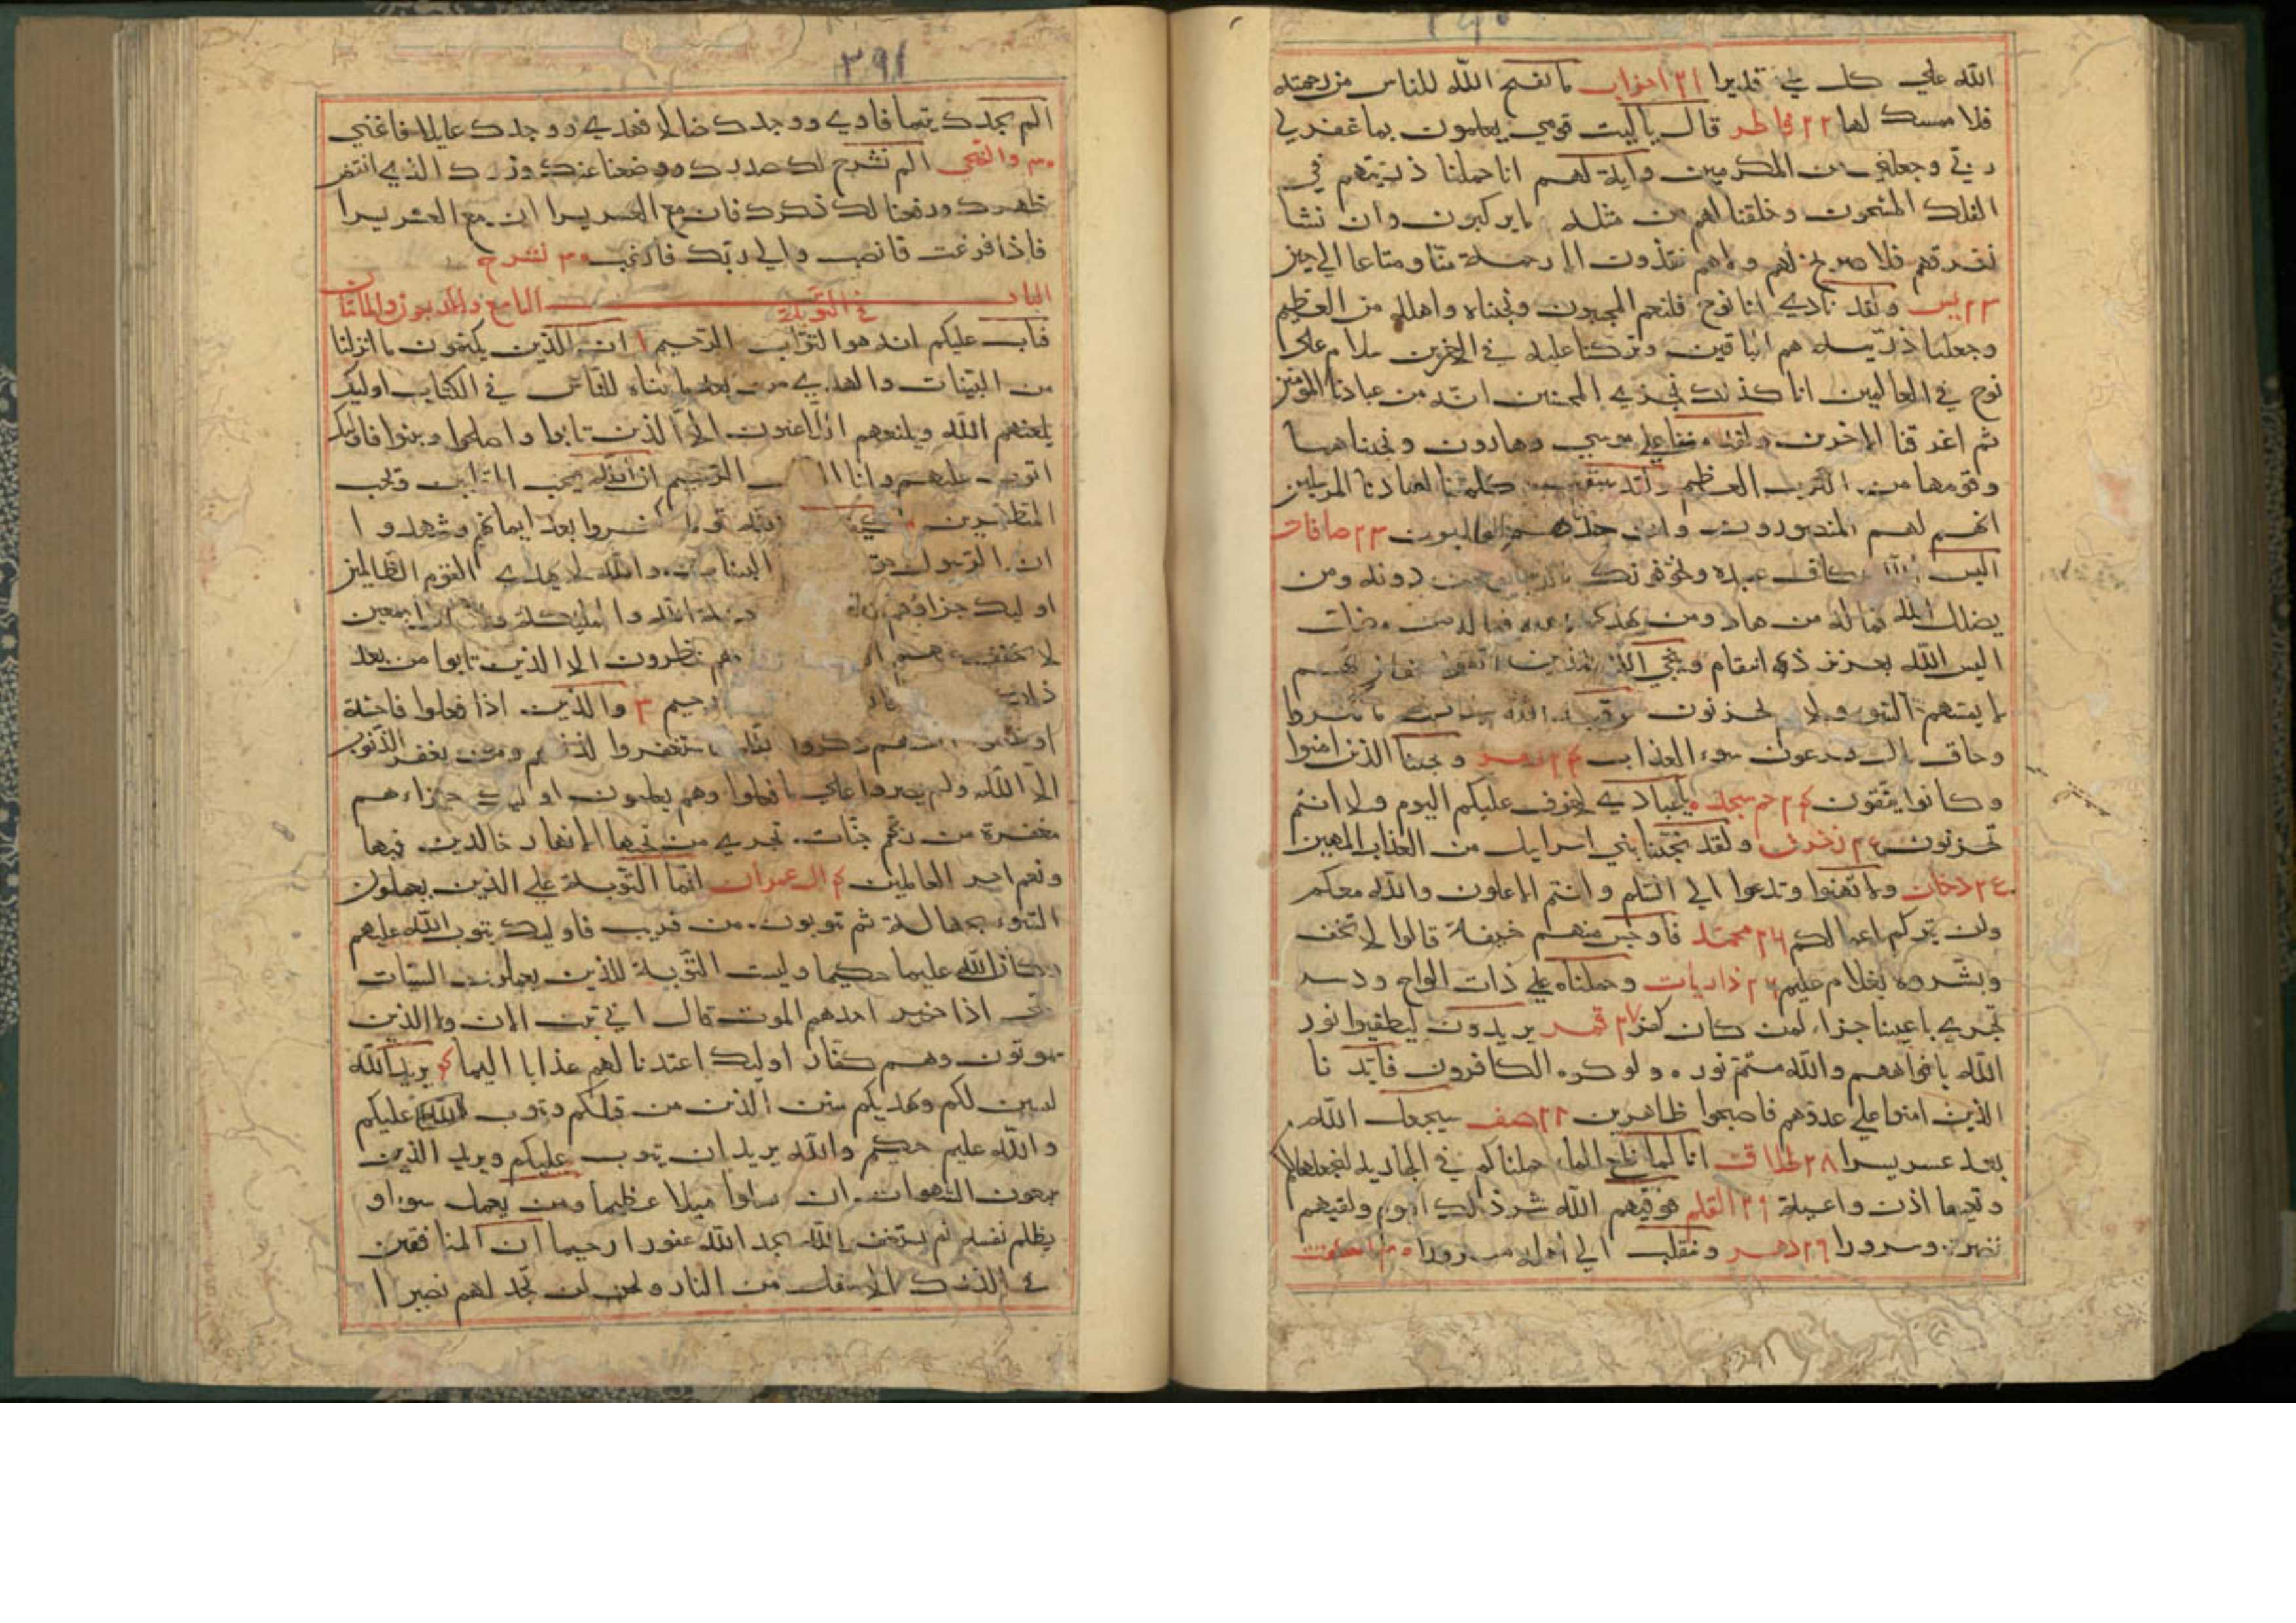 الله علي كل شي قديرا ٢١ احزاب ما يفتح الله للناس من رحمته
فلا ممسك لها ٢٢ فاطر قال ياليت قومي يعلمون بما غفر لي
ربي وجعلني من المكرمين واية لهم انا حملنا ذريتهم في
الفلك المشحون وخلقنا لهم من مثله ما يركبون وان نشا
نغرقهم فلا صريخ لهم ولا هم ينقذون الا رحمة منا ومتاعا الي حين
٢٣ يس ولقد نادي انا نوح فلنعم المجيبون ونجيناه واهله من العظيم
وجعلنا ذريته هم الباقين وتركنا عليه في الاخرين سلام علي
نوح في العالمين انا كذلك نجزي المحسنين انه من عبادنا المؤمنين
ثم اغرقنا الاخرين ولقد مننا علي موسي وهارون ونجيناهما
وقومهما من الكرب العظيم ولقد سبقت كلمتنا لعبادنا المرسلين
انهم لهم المنصورون وان جندهم الغالبون ٢٣ صافات
اليس الله بكاف عبده ويخوفونك بالذين من دونه ومن
يضلل الله فما له من هاد ومن يهد الله فما له من مضل
اليس الله بعزيز ذي انتقام وينجي الله الذين اتقوا بمفازتهم
لا يمسهم السوء ولا هم يحزنون فوقيه الله سيات ما مكروا
وحاق بال فرعون سوء العذاب ٢٤ ونجينا الذين امنوا
وكانوا يتقون ٢٤ حم سجده يا عبادي لا خوف عليكم اليوم ولا انتم
تحزنون ٢٤ زخرف ولقد نجينا بني اسرايل من العذاب المهين
٢٤ دخان ولا تهنوا وتدعوا الي السلم وانتم الاعلون والله معكم
ولن يتركم اعمالكم ٢٦ محمد فاوجس منهم خيفة قالوا لا تخف
وبشروه بغلام عليم ٢٦ ذاريات وحملناه علي ذات الواح ودسر
تجري باعيننا جزاء لمن كان كفر ٢٧ قمر يريدون ليطفيوا نور
الله بافواههم والله متم نوره ولو كره الكافرون فايدنا
الذين امنوا علي عدوهم فاصبحوا ظاهرين ٢٨ صف سيجعل الله
بعد عسر يسرا ٢٨ طلاق انا لما طغي الماء حملناكم في الجارية لنجعلها لكم
وتعيها اذن واعية ٢٩ القلم فوقيهم الله شر ذلك اليوم ولقيهم
نضرة وسرورا ٢٩ دهر وينقلب الي اهله مسرورا
٣٩١
الم يجدك يتيما فاوي ووجدك ضالا فهدي ووجدك عايلا فاغني
٣٠ والضحي الم نشرح لك صدرك ووضعنا عنك وزرك الذي انقض
ظهرك ورفعنا لك ذكرك فان مع العسر يسرا ان مع العسر يسرا
فاذا فرغت فانصب والي ربك فارغب ٣٠ نشرح
الباب التاسع والاربعون والمائتان في التوبة
فتاب عليكم انه هو التواب الرحيم ١ ان الذين يكتمون ما انزلنا
من البينات والهدي من بعد ما بيناه للناس في الكتاب اوليك
يلعنهم الله ويلعنهم اللاعنون الا الذين تابوا واصلحوا وبينوا فاوليك
اتوب عليهم وانا الرحيم ان الله يحب التوابين ويحب
المتطهرين كيف الله قوما كفروا بعد ايمانهم وشهدوا
ان الرسول حق البينات والله لا يهدي القوم الظالمين
اوليك جزاؤهم ان لعنة الله والمليكة والناس اجمعين
لا يخفف عنهم ولا هم ينظرون الا الذين تابوا من بعد
ذلك رحيم ٣ والذين اذا فعلوا فاحشة
او ظلموا انفسهم ذكروا الله فاستغفروا لذنوبهم ومن يغفر الذنوب
الا الله ولم يصروا علي ما فعلوا وهم يعلمون اوليك جزاءهم
مغفرة من ربهم جنات تجري من تحتها الانهار خالدين فيها
ونعم اجر العالمين ٤ ال عمران انما التوبة علي الذين يعملون
السوء بجهالة ثم يتوبون من قريب فاوليك يتوب الله عليهم
وكان الله عليما حكيما وليست التوبة للذين يعملون السيات
حتي اذا حضر احدهم الموت قال اني تبت الان ولا الذين
يموتون وهم كفار اوليك اعتدنا لهم عذابا اليما ٤ يريد الله
ليبين لكم ويهديكم سنن الذين من قبلكم ويتوب الله عليكم
والله عليم حكيم والله يريد ان يتوب عليكم ويريد الذين
يتبعون الشهوات ان تميلوا ميلا عظيما ومن يعمل سوء او
يظلم نفسه ثم يستغفر الله يجد الله غفورا رحيما ان المنافقين
في الدرك الاسفل من النار ولن تجد لهم نصيرا